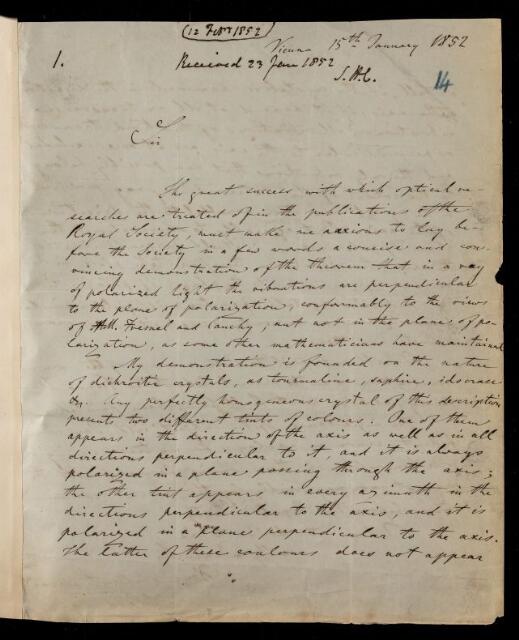 (12 Feby 1852)
Vienna 15th January 1852
1.
Received 23 Jany 1852
S.H.C.
14
Sir
The great success with which optical re-
searches are treated of in the publications of the
Royal Society, must make me anxious to lay be-
fore the Society in a few words a concise and con-
vincing demonstration of the theorem that in a ray
of polarized light the vibrations are perpendicular
to the plane of polarization, conformably to the views
of MM. Fresnel and Cauchy, and not in the plane of po-
larization, as some other mathematicians have maintained
My demonstration is founded on the nature
of dichroitic crystals, as tourmaline, saphire, idocrase
&. Any perfectly homogeneous crystal of this description
presents two different tints of colours. One of them
appears in the direction of the axis as well as in all
directions perpendicular to it, and it is always
polarized in a plane passing through the axis;
the other tint appears in every azimuth in the
directions perpendicular to the axis, and it is
polarized in a plane perpendicular to the axis.
The latter of these coulours does not appear